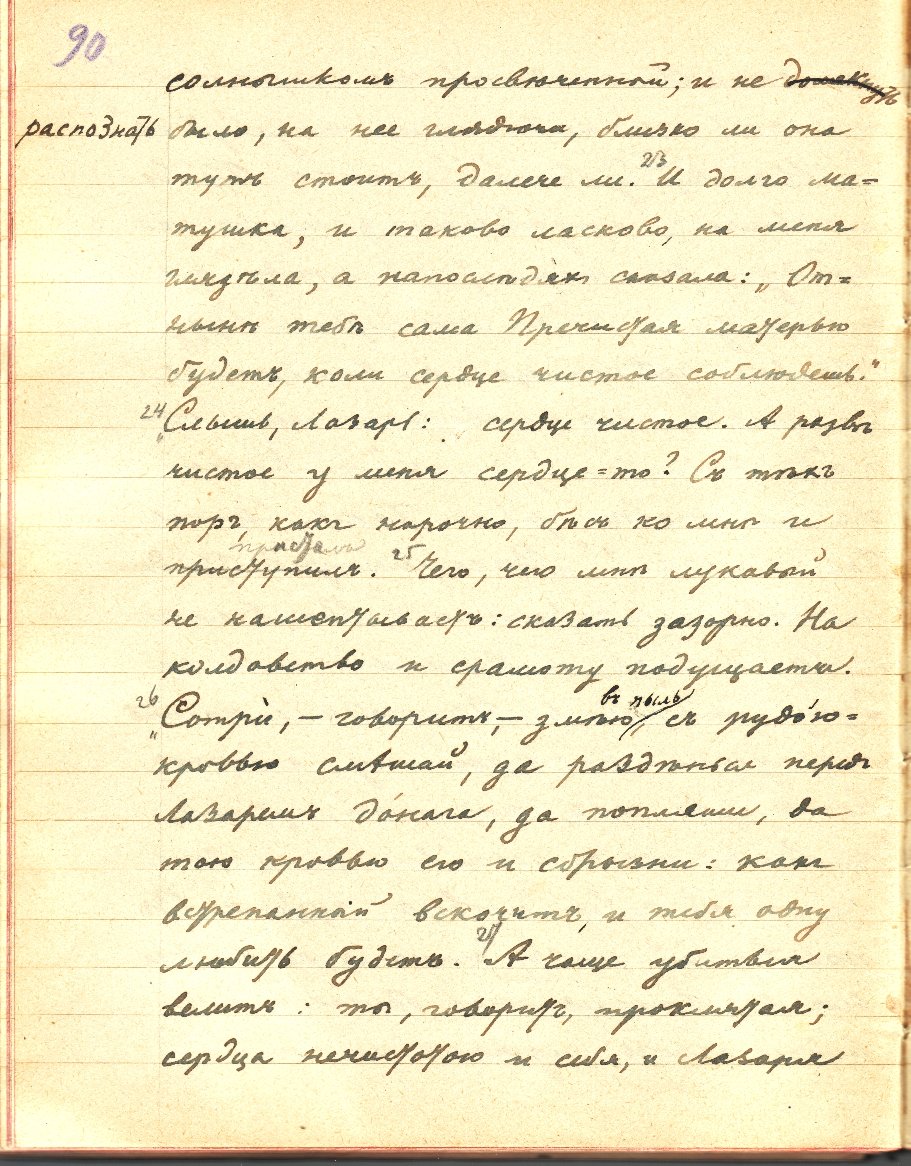 90
солнышкомъ просвѣченной; и не домекнуть
распознать было, на нее глядючи, близко ли она
тутъ стоитъ, далече ли. 23 И долго ма=
тушка, и таково ласково, на меня
глядѣла, а напослѣдяхъ сказала: „От=
нынѣ тебѣ сама Пречистая матерью
будетъ, коли сердце чистое соблюдешь."
24 „Слышь, Лазарь: сердце чистое. А развѣ
чистое у меня сердце=то? Съ тѣхъ
поръ, какъ нарочно, бѣсъ ко мнѣ и
присталъ
приступилъ. 25 Чего, чего мнѣ лукавый
не нашептываетъ: сказать зазорно. На
колдовство и срамоту подущаетъ.
въ пыль
26 „Сотри, – говоритъ, – змѣю, съ рудо́ю=
кровью смѣшай, да разднѣься передъ
Лазаремъ до́нага, да попляши, да
тою кровью его и сбрызни: какъ
встрепанный вскочитъ, и тебя одну
любить будетъ. 27 А чаще убиться
велитъ: ты, говоритъ, проклятая;
сердца нечистотою и себя, и Лазаря